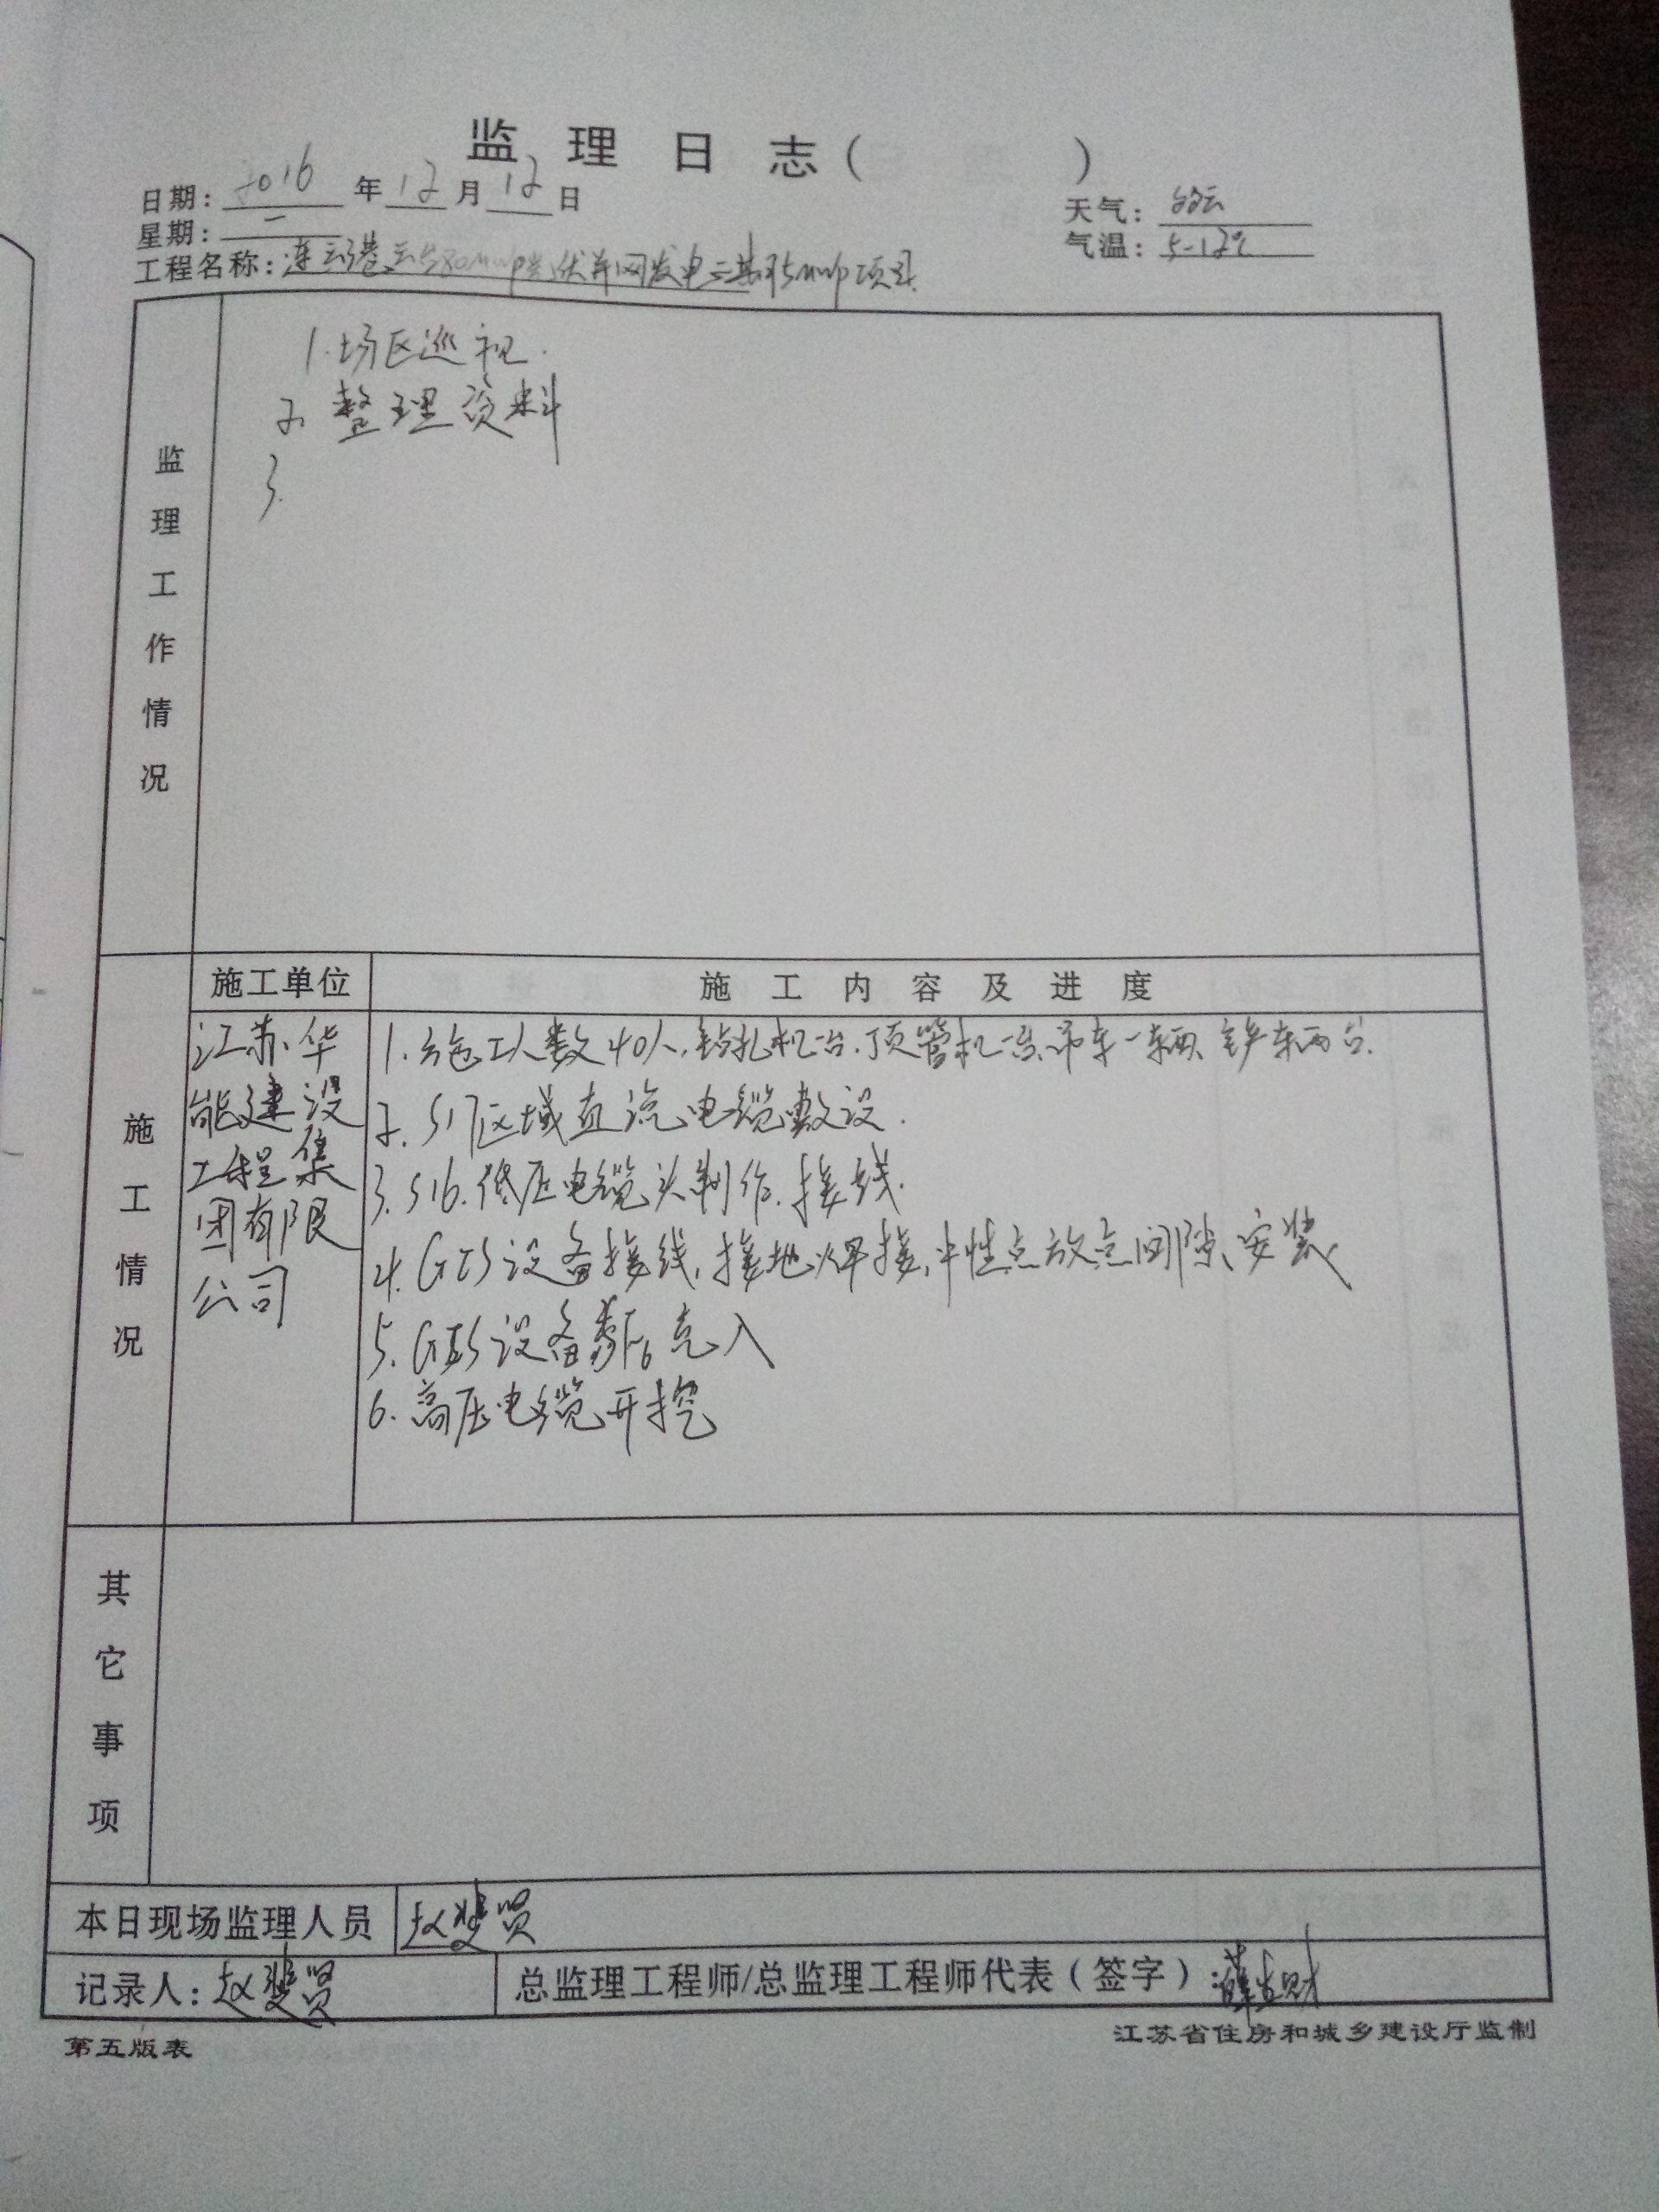 监理日志（ ）
日期：2016年12月12日
天气：多云
星期：一
气温：5-12℃
工程名称：连云港云台80MWp光伏并网发电二期35MWp项目
监理工作情况
1.场区巡视.
2.整理资料
3.
施工单位
施工内容及进度
施工情况
江苏华
能建设
工程集
团有限
公司
1.施工人数40人,钻孔机一台.顶管机一台.吊车一辆、铲车两台.
2.S17区域直流电缆敷设.
3.S16.低压电缆头制作.接线.
4.GIS设备接线,接地焊接,中性点放点间隙、安装
5.GIS设备SF6充入
6.高压电缆开挖
其它事项
本日现场监理人员 赵
记录人：赵
总监理工程师/总监理工程师代表（签字）：薛
第五版表
江苏省住房和城乡建设厅监制